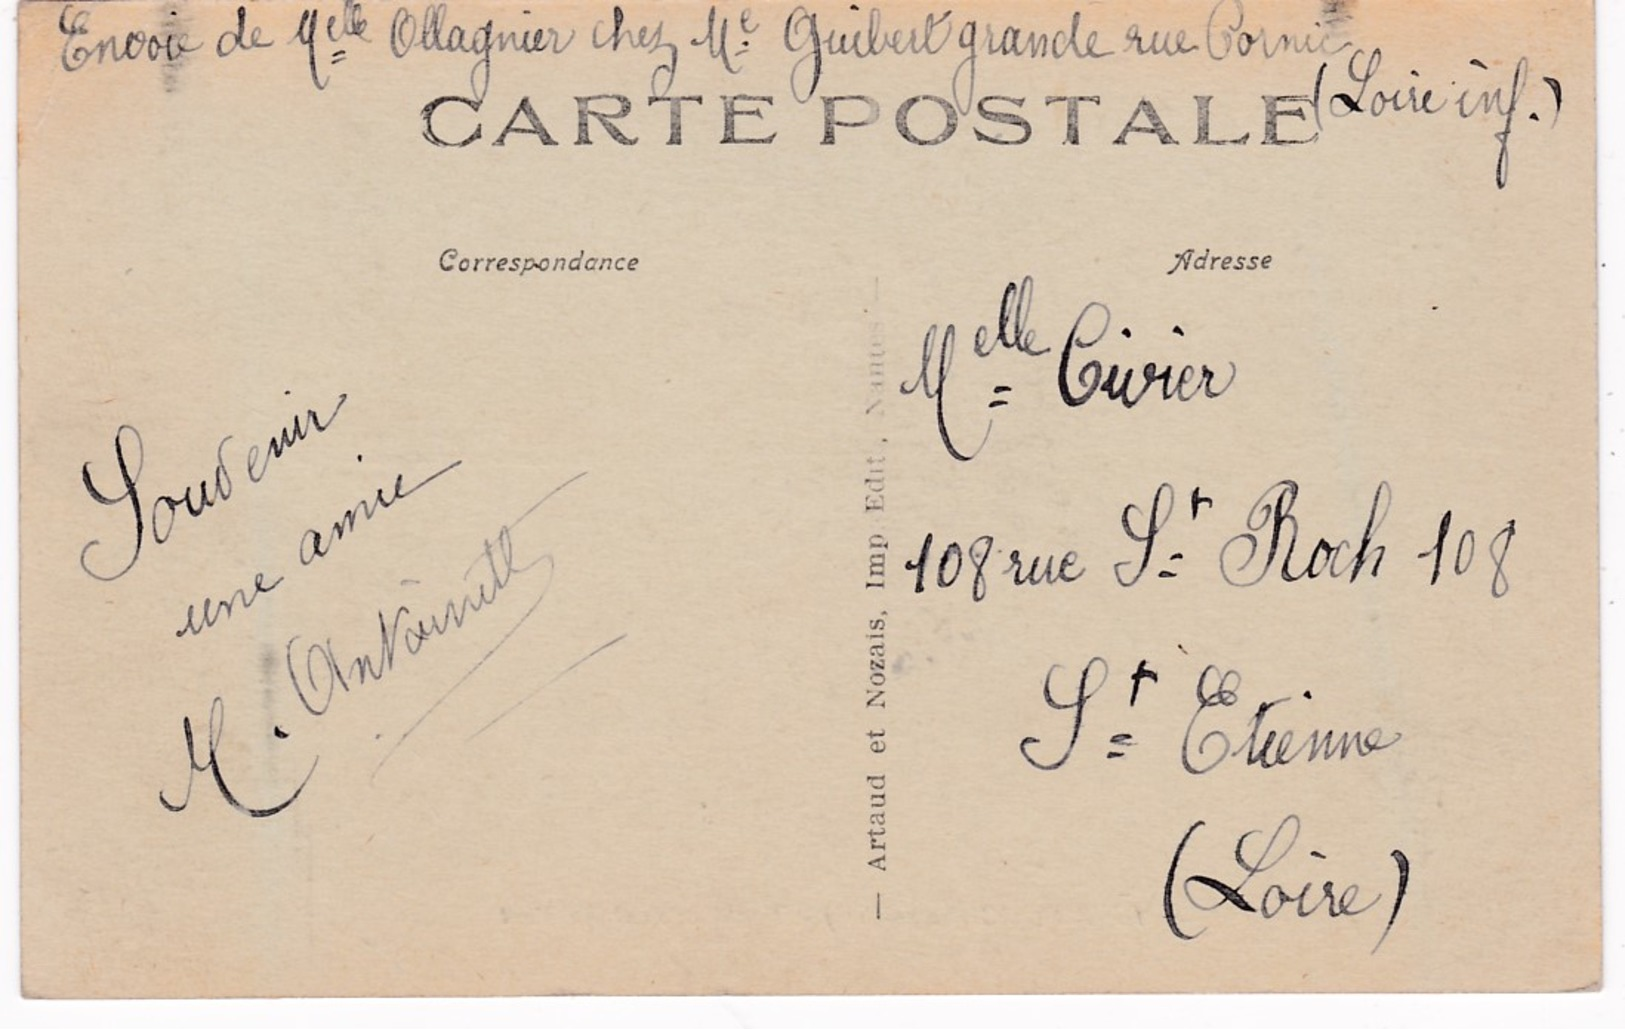 Envoie de Melle Ollagnier chez Me Guibert grande rue Pornic
(Loire inf.)
CARTE POSTALE
Correspondance
Adresse
Souvenir
une amie
M. Antoinette
— Artaud et Nozais, Imp. Edit., Nantes —
Melle Civier
108 rue St Roch 108
St Etienne
(Loire)